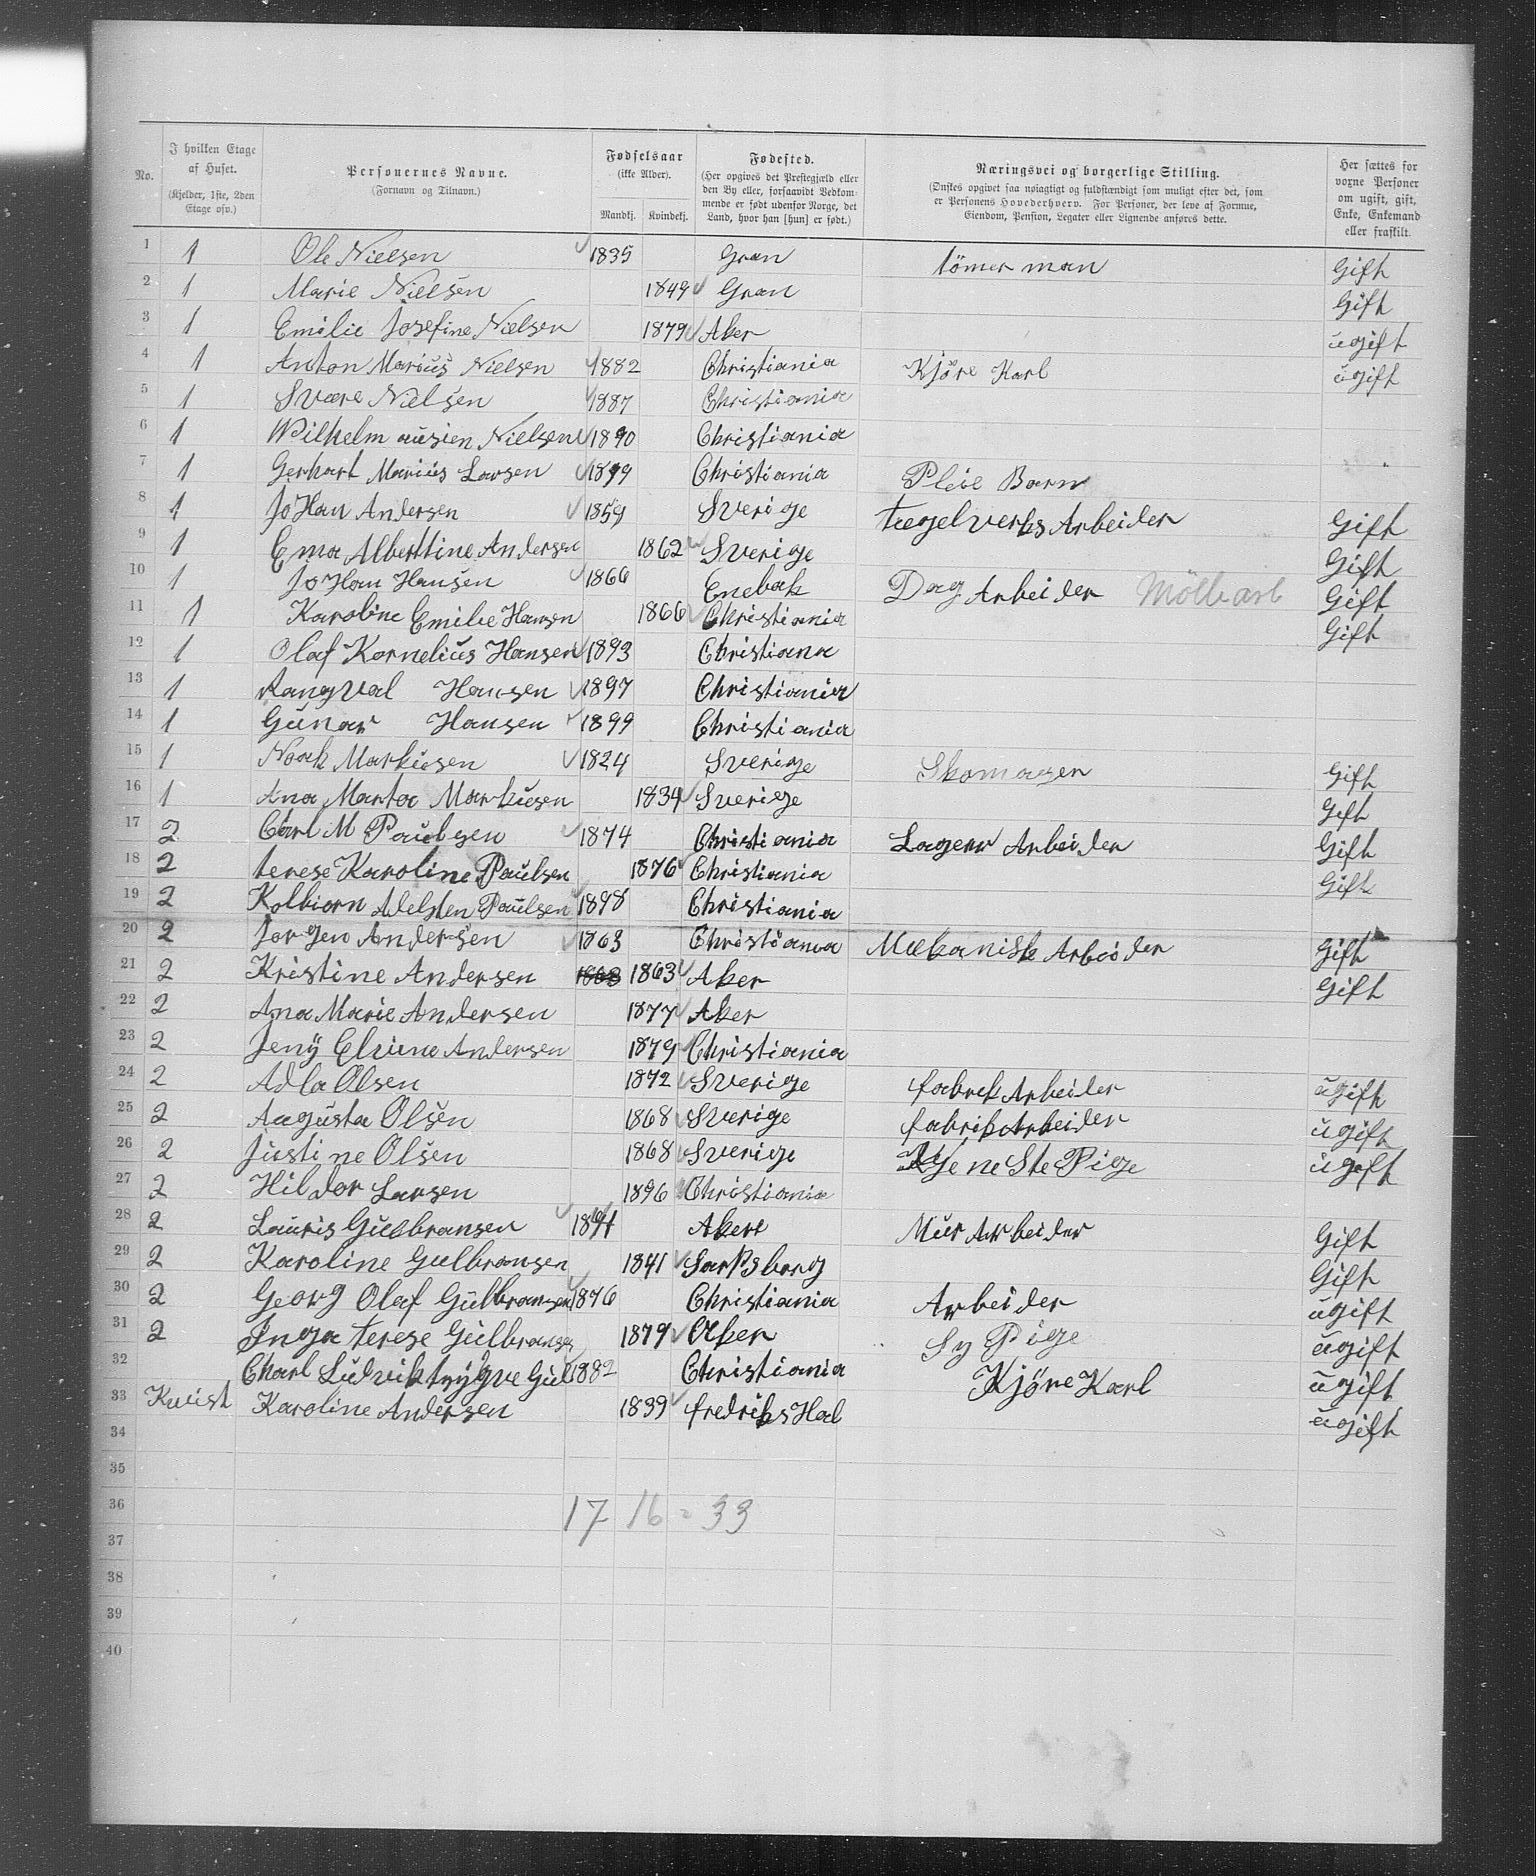 No. | I hvilken Etage af Huset. (Kjelder, 1ste, 2den Etage osv.) | Personernes Navne. (Fornavn og Tilnavn.) | Fødselsaar (ikke Alder). Mandkj. Kvindekj. | Fødested. (Her opgives det Prestegjæld eller den By eller, forsaavidt Vedkommende er født udenfor Norge, det Land, hvor han [hun] er født.) | Næringsvei og borgerlige Stilling. (Ønskes opgivet saa nøiagtigt og fuldstændigt som muligt efter det, som er Personens Hovederhverv. For Personer, der leve af Formue, Eiendom, Pension, Legater eller Lignende anføres dette.) | Her sættes for voxne Personer om ugift, gift, Enke, Enkemand eller fraskilt.
1 1 Ole Nielsen 1835 Gran tömer man Gift
2 1 Marie Nielsen 1849 Gran Gift
3 1 Emilie Josefine Nielsen 1879 Aker ugift
4 1 Anton Marius Nielsen 1882 Christiania Kjöre Karl ugift
5 1 Svære Nielsen 1887 Christiania
6 1 Wilhelm Nielsen 1890 Christiania
7 1 Gerhart Marius Larsen 1899 Christiania Pleie Barn
8 1 JoHan Andersen 1859 Sverige Tægelverks Arbeider Gift
9 1 Ema Alberttine Andersen 1862 Sverige Gift
10 1 JoHan Hansen 1866 Enebak Dag Arbeider Möllkarl Gift
11 1 Karoline Emilie Hansen 1866 Christiania Gift
12 1 Olaf Kornelius Hansen 1893 Christiana
13 1 Rangval Hansen 1897 Christiania
14 1 Gunar Hansen 1899 Christiania
15 1 Noak Markusen 1824 Sverige Skomager Gift
16 1 Ana Marta Markusen 1834 Sverige Gift
17 2 Carl M Paulsen 1874 Christiania Lagerv Arbeider Gift
18 2 terese Karoline Paulsen 1876 Christiania Gift
19 2 Kolbiorn Adelsten Paulsen 1898 Christiania
20 2 Jorgen Andersen 1863 Christiania Mækanisk Arbeider Gift
21 2 Kristine Andersen 1863 Aker Gift
22 2 Ana Marie Andersen 1877 Aker
23 2 Jeny Elvine Andersen 1879 Christiania
24 2 Adla Olsen 1872 Sverige fabrek Arbeider ugift
25 2 Augusta Olsen 1868 Sverige fabrik Arbeider ugift
26 2 Justine Olsen 1868 Sverige Tjene Ste Pige ugift
27 2 Hildor Larsen 1896 Christiania
28 2 Lauris Gulbransen 1841 Akere Mur Arbeider Gift
29 2 Karoline Gulbransen 1841 Sarpsborg Gift
30 2 Georg Olaf Gulbransen 1876 Christiania Arbeider ugift
31 2 Inga terese Gulbransen 1879 Aker Sy Pige ugift
32 Charl Ludvik trygve Gul 1882 Christiania Kjöre Karl ugift
33 Kvist Karoline Andersen 1839 fredriksHal ugift
34
35
36 17 16 = 33
37
38
39
40